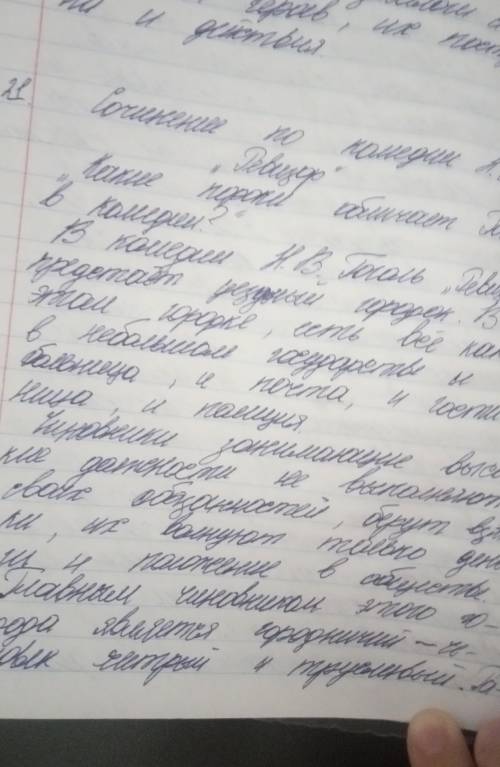 на и героев, их пост
и действия.
21. Сочинение по комедии Н.
"Ревизор"
"Какие пороки обличает Го
в комедии?"
В комедии Н.В. Гоголь "Реви
предстаёт уездный городок. В
этом городке, есть всё как
в небольшом государстве и
больница, и почта, и гости
ница, и полиция
Чиновники занимающие высо
кие должности не выполняют
своих обязанностей, берут вз
ки, их волнуют только день
ги и положение в обществе.
Главным чиновником этого го-
рода является городничий - че-
ловек хитрый и трусливый. Го